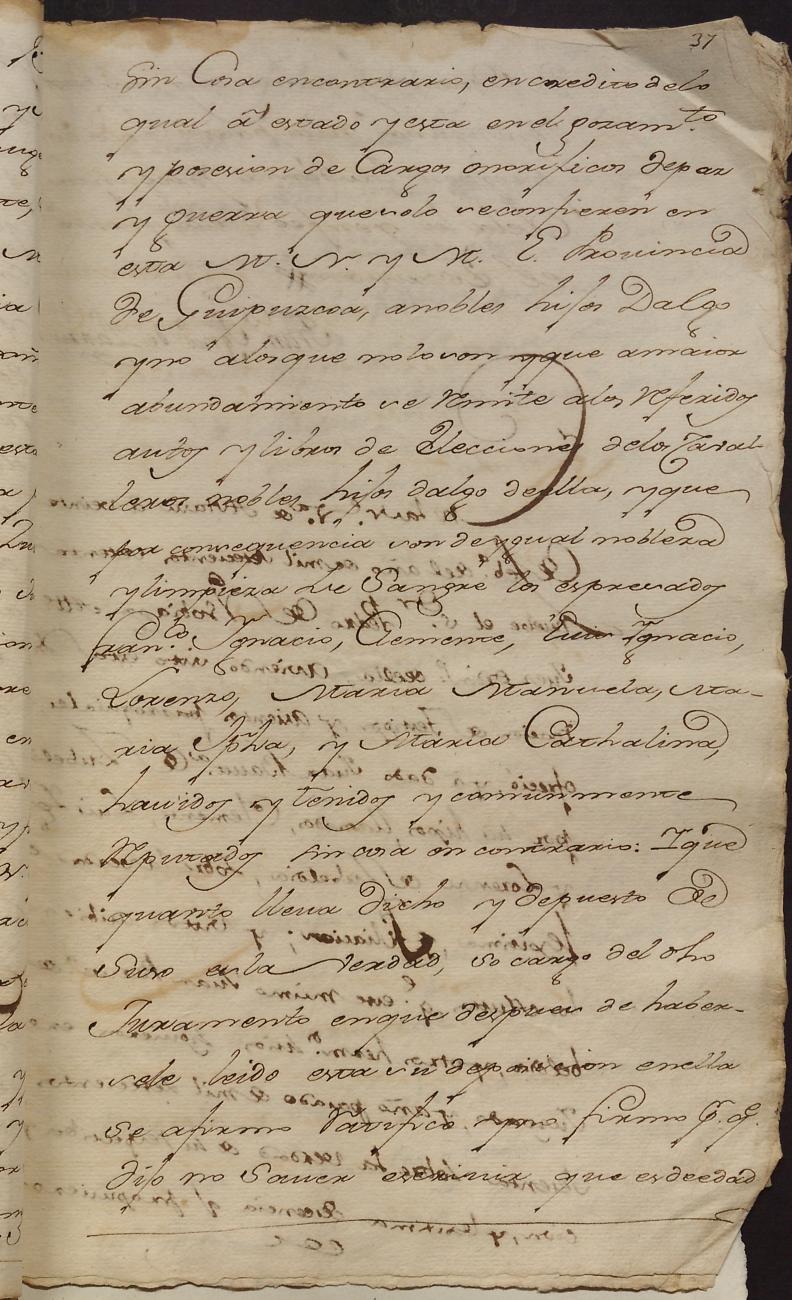 37
sin Cosa encontrario, encredito delo
qual à estado y esta en el gozam.to
y posesion de Cargos onorificos de paz
y guerra que solo se confieren en
esta M. N. y M. L. Provincia
de Guipuzcoa, a nobles hijos Dalgo
y no alos que no lo son y que a maior
abundamiento se remite a los referidos
autos y libros de Elecciones delos
nobles hijos dalgo de ella, y que
por consequencia son de ygual nobleza
y limpieza de Sangre los espresados
Fran.co Ignacio, Clemente, Luis Ignacio,
Lorenzo, Maria Manuela, Ma-
ria Jpha, y Maria Cathalina,
havidos y tenidos y comunmente
reputados sin cosa en contrario: I que
quanto lleva dicho y depuesto de
suso es la Verdad, so cargo del dho
Juramento en que despues de haber-
sele leido esta su deposicion en ella
se afirmo ratifico y no firmo p.r q.e
dijo no saver escrivir que es de edad